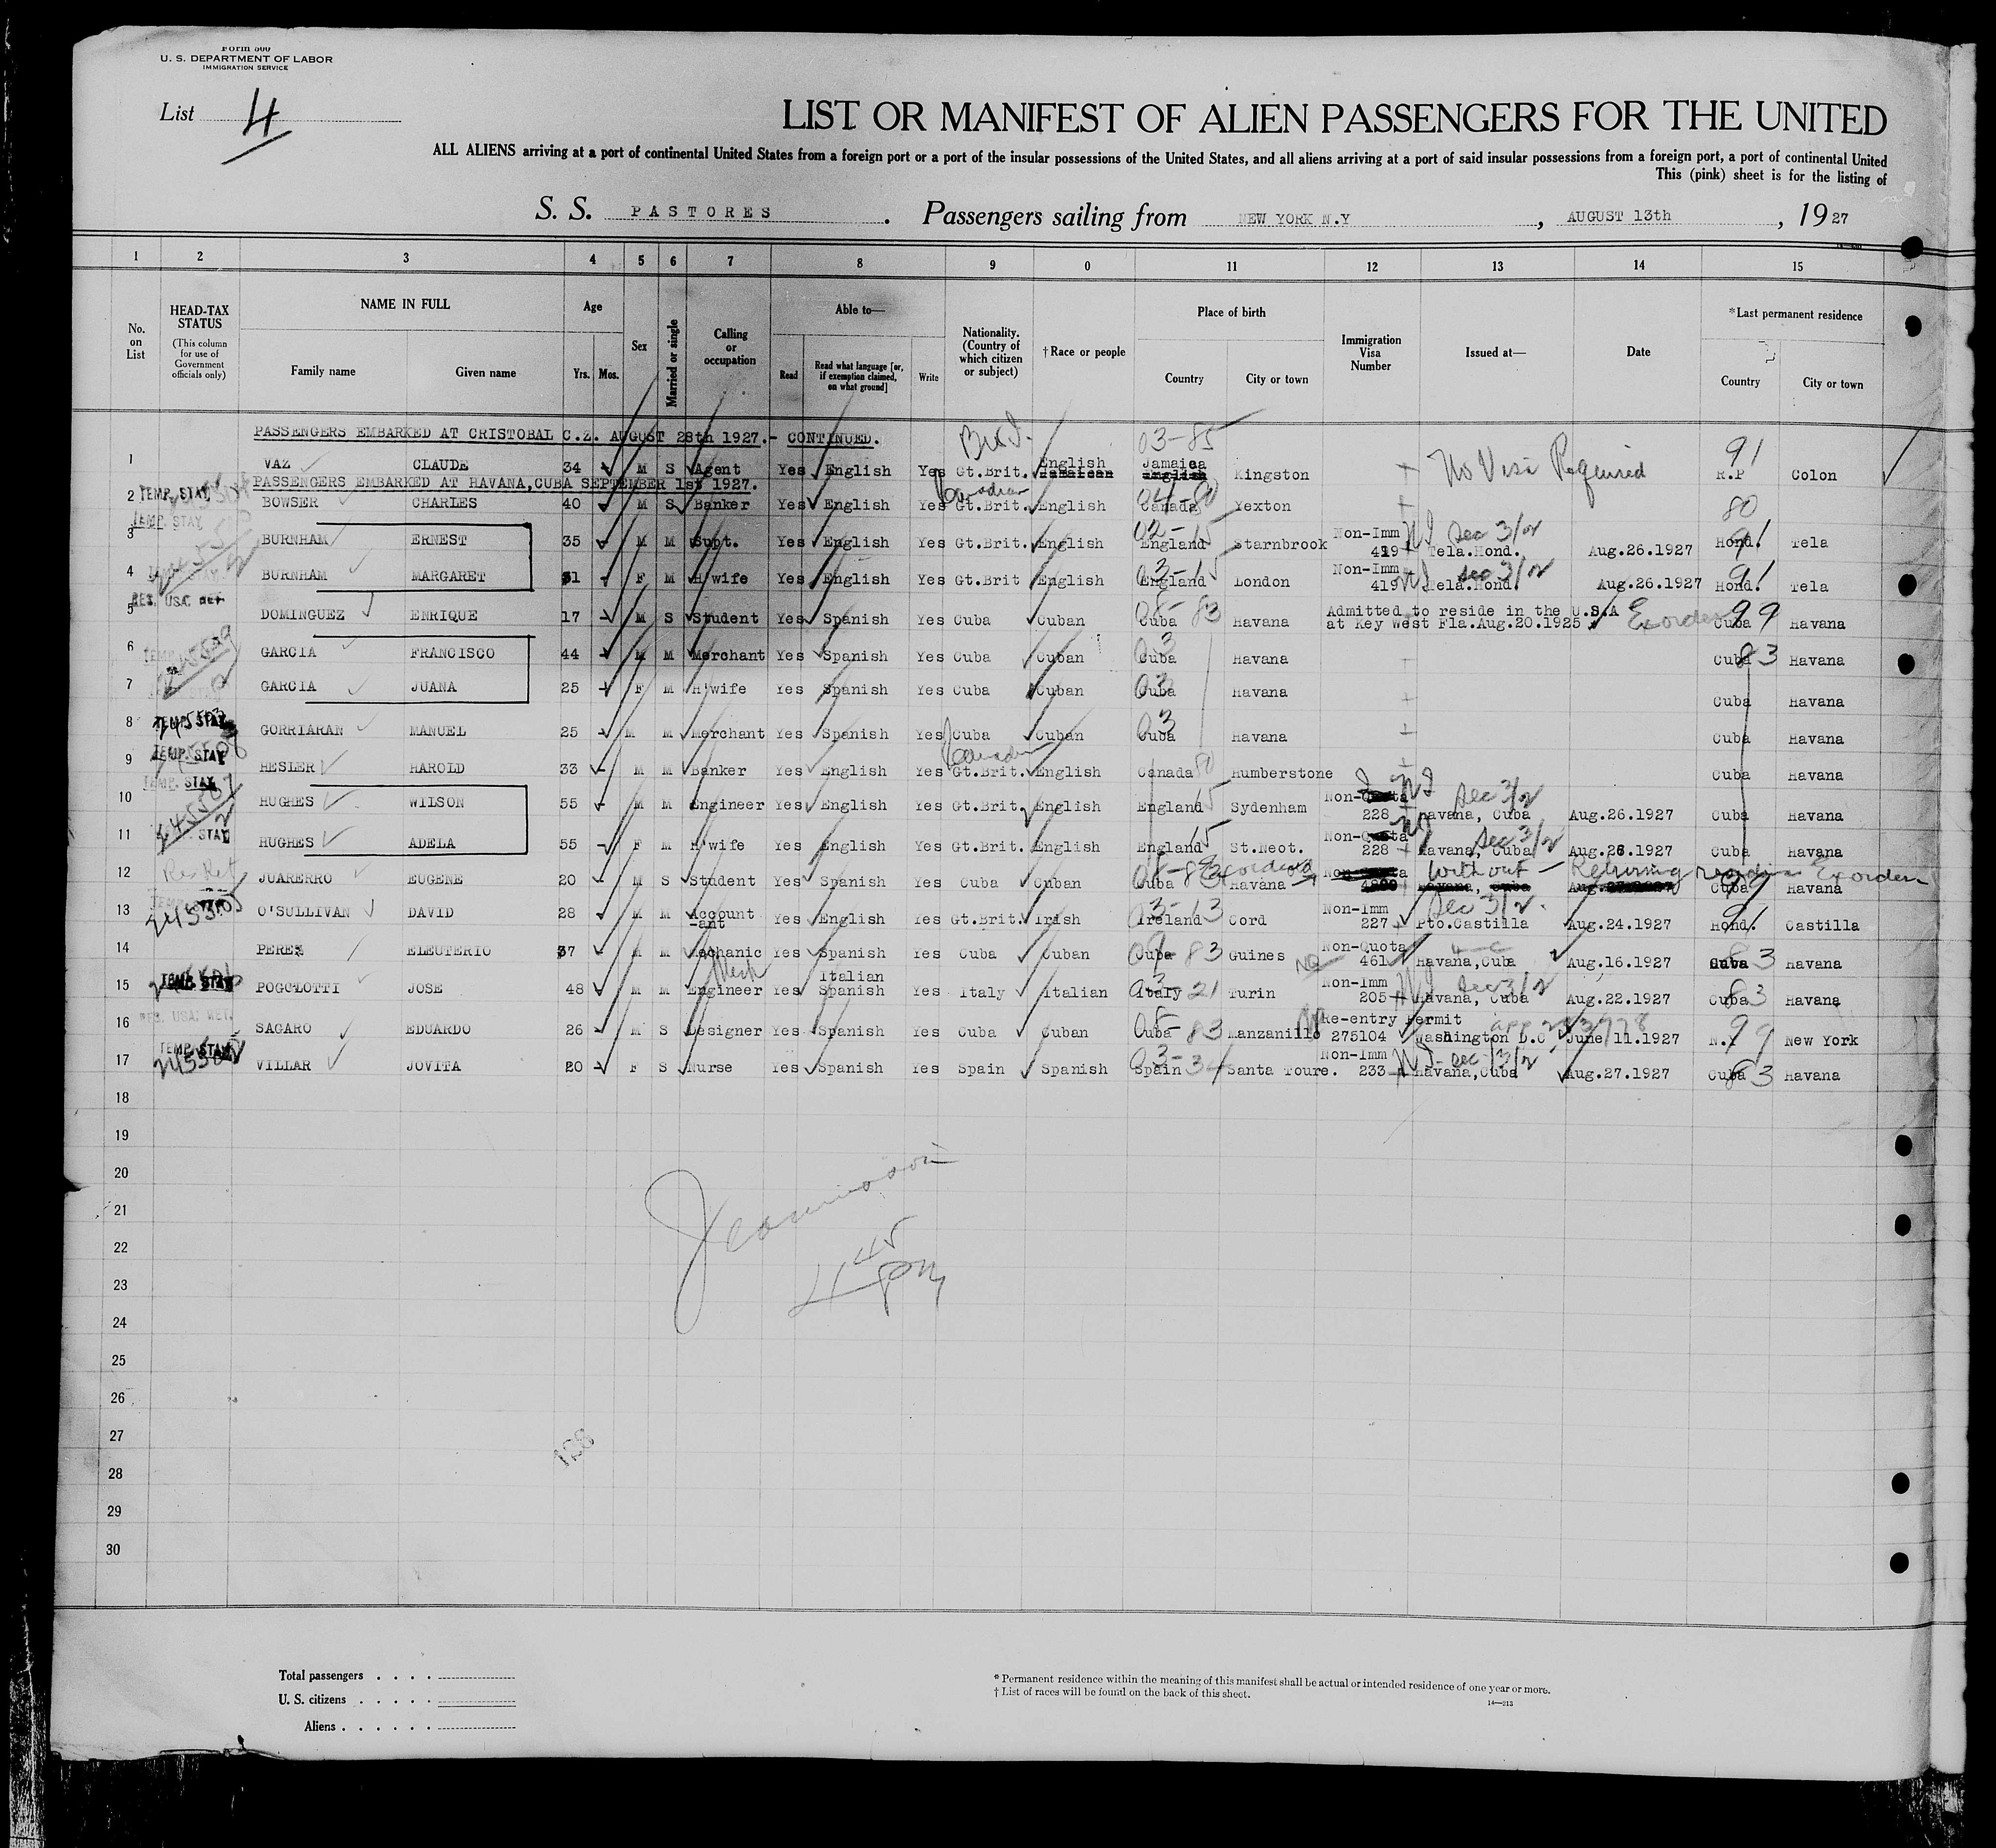 Form 500
U. S. DEPARTMENT OF LABOR
IMMIGRATION SERVICE
List 4
LIST OR MANIFEST OF ALIEN PASSENGERS FOR THE UNITED
ALL ALIENS arriving at a port of continental United States from a foreign port or a port of the insular possessions of the United States, and all aliens arriving at a port of said insular possessions from a foreign port, a port of continental United
This (pink) sheet is for the listing of
S. S. PASTORES. Passengers sailing from NEW YORK N.Y, AUGUST 13th, 1927
1 2 3 4 5 6 7 8 9 0 11 12 13 14 15
No. on List
HEAD-TAX STATUS
(This column for use of Government officials only)
NAME IN FULL
Family name Given name
Age
Yrs. Mos.
Sex
Married or single
Calling or occupation
Able to—
Read
Read what language [or, if exemption claimed, on what ground]
Write
Nationality. (Country of which citizen or subject)
†Race or people
Place of birth
Country City or town
Immigration Visa Number
Issued at—
Date
*Last permanent residence
Country City or town
PASSENGERS EMBARKED AT CRISTOBAL C.Z. AUGUST 28th 1927.- CONTINUED.
1 VAZ CLAUDE 34 M S Agent Yes English Yes Gt.Brit. English Jamaica Kingston No Visa Required R.P Colon 03-85 91
PASSENGERS EMBARKED AT HAVANA,CUBA SEPTEMBER 1st 1927.
2 TEMP. STAY BOWSER CHARLES 40 M S Banker Yes English Yes Canadian Gt.Brit. English Canada Yexton 80
3 TEMP. STAY BURNHAM ERNEST 35 M M Supt. Yes English Yes Gt.Brit. English England 02-15 Starnbrook Non-Imm 419 NI Sec 3/2 Tela.Hond. Aug.26.1927 Hond. 91 Tela
4 BURNHAM MARGARET 31 F M H'wife Yes English Yes Gt.Brit English England 03-15 London Non-Imm 419 NI Sec 3/2 Tela.Hond. Aug.26.1927 Hond. 91 Tela
5 RES. USA. RET DOMINGUEZ ENRIQUE 17 M S Student Yes Spanish Yes Cuba Cuban Cuba 83 Havana Admitted to reside in the U.S.A at Key West Fla.Aug.20.1925 Cuba 99 Havana
6 GARCIA FRANCISCO 44 M M Merchant Yes Spanish Yes Cuba Cuban Cuba Havana Cuba 83 Havana
7 GARCIA JUANA 25 F M H'wife Yes Spanish Yes Cuba Cuban Cuba Havana Cuba Havana
8 TEMP. STAY GORRIARAN MANUEL 25 M M Merchant Yes Spanish Yes Cuba Cuban Cuba Havana Cuba Havana
9 TEMP. STAY HESLER HAROLD 33 M M Banker Yes English Yes Canadian Gt.Brit. English Canada 80 Humberstone Cuba Havana
10 TEMP. STAY HUGHES WILSON 55 M M Engineer Yes English Yes Gt.Brit. English England 15 Sydenham Non- 228 NI Sec 3/2 Havana, Cuba Aug.26.1927 Cuba Havana
11 STAY HUGHES ADELA 55 F M H'wife Yes English Yes Gt.Brit. English England 15 St.Neot. Non- 228 NI Sec 3/2 Havana, Cuba Aug.26.1927 Cuba Havana
12 JUARERRO EUGENE 20 M S Student Yes Spanish Yes Cuba Cuban Cuba 83 Havana without - Returning Cuba 99 Havana
13 O'SULLIVAN DAVID 28 M M Account-ant Yes English Yes Gt.Brit. Irish Ireland 3-13 Cord Non-Imm 227 Sec 3/2. Pto.Castilla Aug.24.1927 Hond. 91 Castilla
14 PEREZ ELEUTERIO 37 M M Mechanic Yes Spanish Yes Cuba Cuban Cuba 83 Guines NQ Non-Quota 461 Havana,Cuba Aug.16.1927 Cuba 3 Havana
15 TEMP. STAY POGOLOTTI JOSE 48 M M Mech Engineer Yes Italian Spanish Yes Italy Italian Italy 21 Turin Non-Imm 205 NI Sec 3/2 Havana, Cuba Aug.22.1927 Cuba 83 Havana
16 RES. USA. RET. SAGARO EDUARDO 26 M S Designer Yes Spanish Yes Cuba Cuban Cuba 83 Manzanillo Re-entry Permit 275104 Washington D.C June 11.1927 N.Y 99 New York
17 TEMP. STAY VILLAR JOVITA 20 F S Nurse Yes Spanish Yes Spain Spanish Spain 3-34 Santa Toure. Non-Imm 233 NI Sec 3/2 Havana,Cuba Aug.27.1927 Cuba 83 Havana
18
19
20
21
22
23
24
25
26
27
28
29
30
4 45 pm
128
Total passengers . . . .
U. S. citizens . . . . .
Aliens . . . . . .
* Permanent residence within the meaning of this manifest shall be actual or intended residence of one year or more.
† List of races will be found on the back of this sheet.
14—213